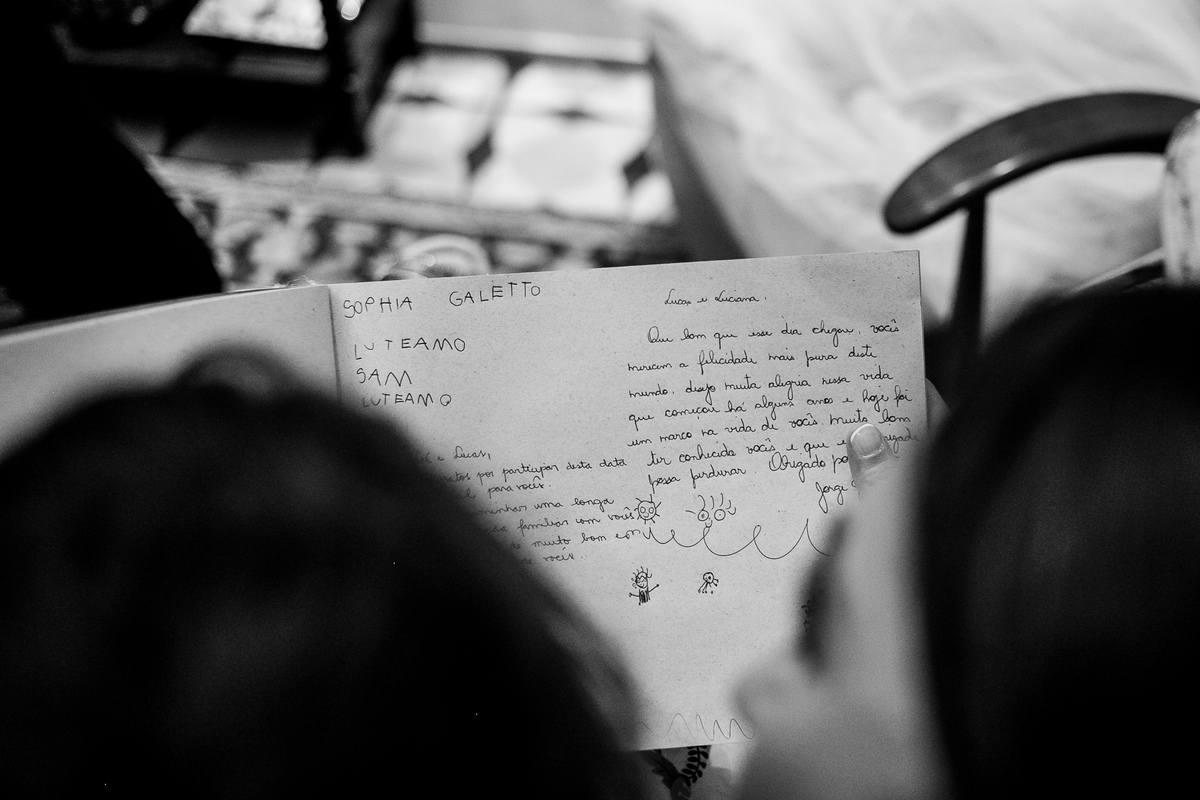 SOPHIA GALETTO
LUTEAMO
SAM
LUTEAMO
e Lucas,
por participar desta data
para vocês.
uma longa
familiar com vocês
muito bom
vocês...
Lucas e Luciana,
Que bom que esse dia chegou, vocês
merecem a felicidade mais pura deste
mundo, desejo muita alegria nessa vida
que começou há alguns anos e hoje foi
um marco na vida de vocês. Muito bom
ter conhecido vocês e que e
possa perdurar. Obrigado
Jorge